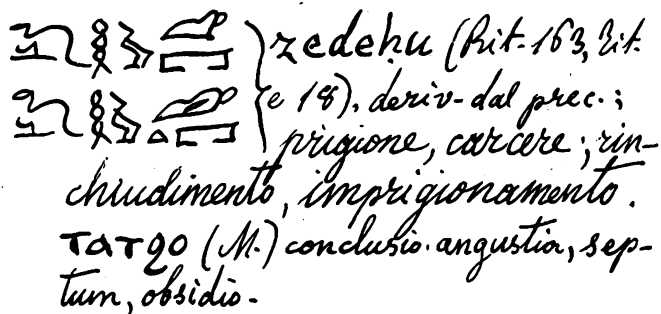 zedeḥu (Rit. 163, tit.
e 18), deriv. dal prec.;
prigione, carcere; rin-
chiudimento, imprigionamento.
ⲧⲁⲧϩⲟ (M.) conclusio. angustia, sep-
tum, obsidio.